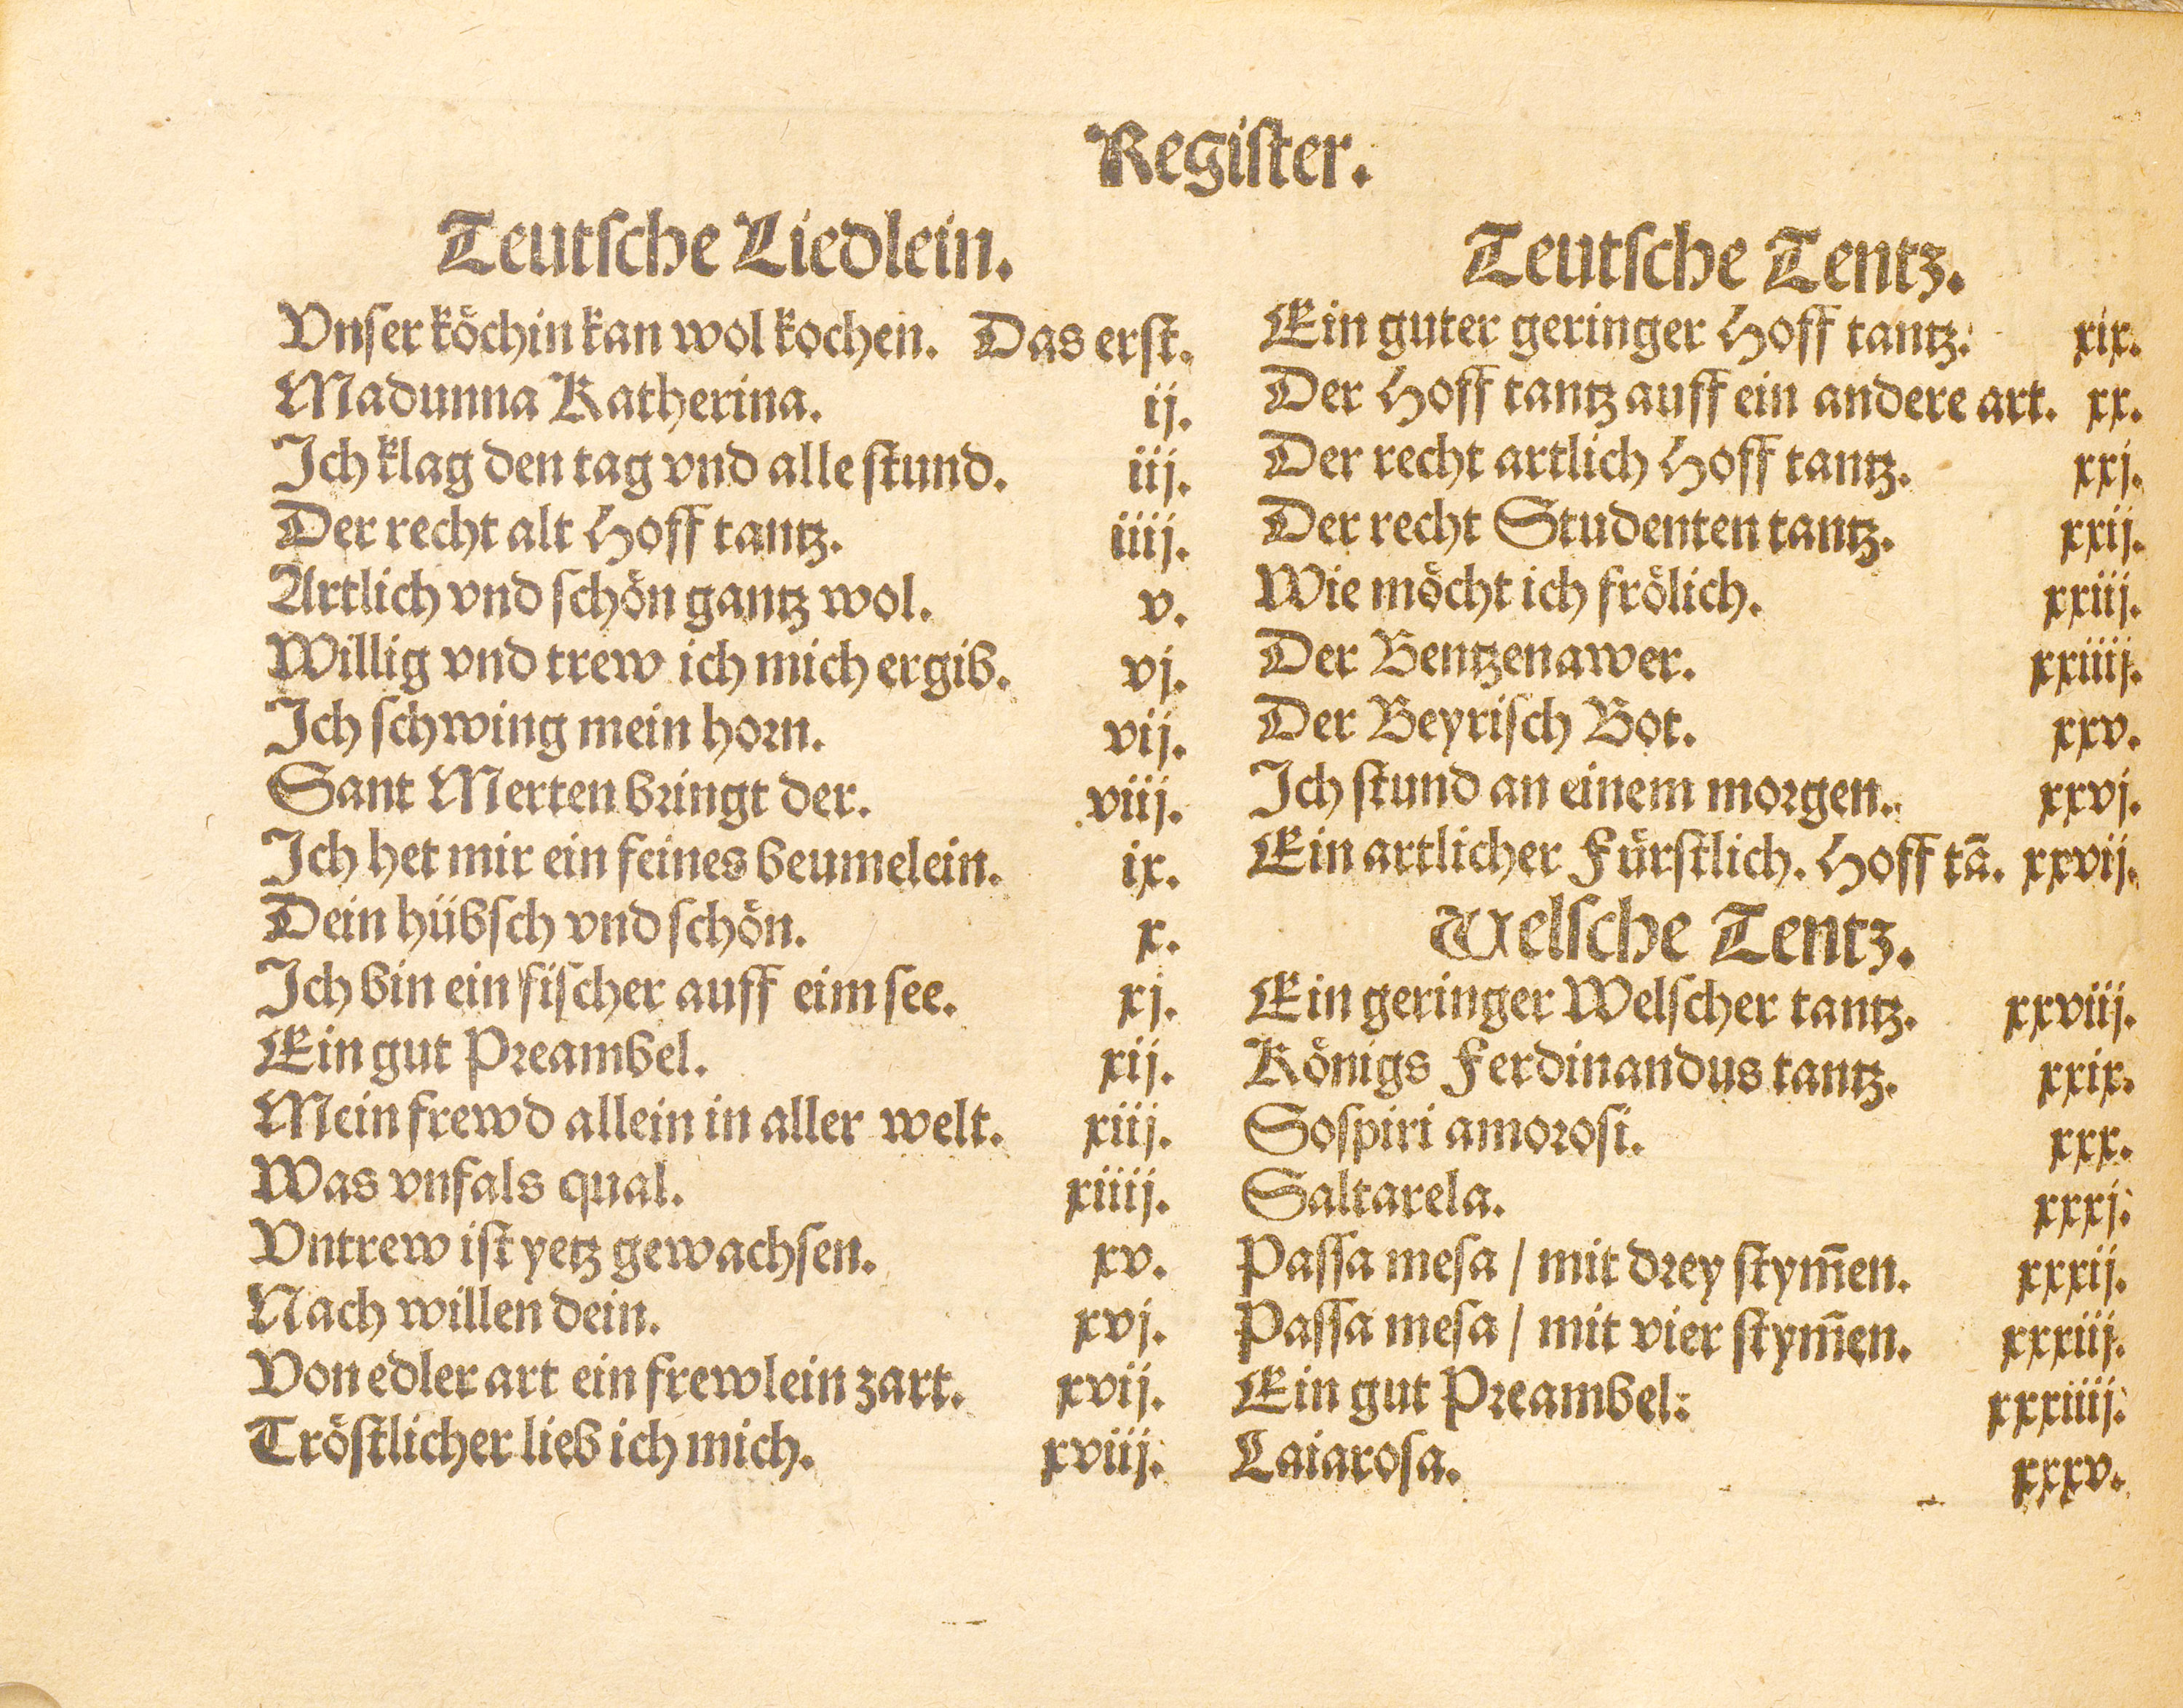 Register.
Teutsche Liedlein.
Vnser köchin kan wol kochen. Das erst.
Madunna Katherina. ij.
Ich klag den tag vnd alle stund. iij.
Der recht alt Hoff tantz. iiij.
Artlich vnd schön gantz wol. v.
Willig vnd trew ich mich ergib. vj.
Ich schwing mein horn. vij.
Sant Merten bringt der. viij.
Ich het mir ein feines beumelein. ix.
Dein hübsch vnd schön. x.
Ich bin ein fischer auff eim see. xj.
Ein gut Preambel. xij.
Mein frewd allein in aller welt. xiij.
Was vnfals qual. xiiij.
Vntrew ist yetz gewachsen. xv.
Nach willen dein. xvj.
Von edler art ein frewlein zart. xvij.
Tröstlicher lieb ich mich. xviij.
Teutsche Tentz.
Ein guter geringer Hoff tantz. xix.
Der Hoff tantz auff ein andere art. xx.
Der recht artlich Hoff tantz. xxj.
Der recht Studenten tantz. xxij.
Wie möcht ich frölich. xxiij.
Der Bentzenawer. xxiiij.
Der Beyrisch Bot. xxv.
Ich stund an einem morgen. xxvj.
Ein artlicher Fürstlich. Hoff tā. xxvij.
Welsche Tentz.
Ein geringer Welscher tantz. xxviij.
Königs Ferdinandus tantz. xxix.
Sospiri amorosi. xxx.
Saltarela. xxxj.
Passa mesa / mit drey stym̄en. xxxij.
Passa mesa / mit vier stym̄en. xxxiij.
Ein gut Preambel: xxxiiij.
Laiarosa. xxxv.